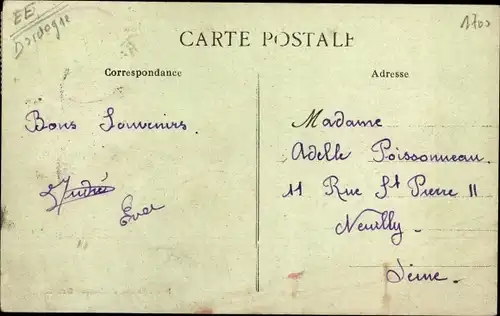 EE
Dordogne
1700
CARTE POSTALE
Correspondance
Adresse
Bons Souvenirs.
André
Madame
Adelle Poissonneau.
11 Rue St Pierre 11
Neuilly.
Seine.